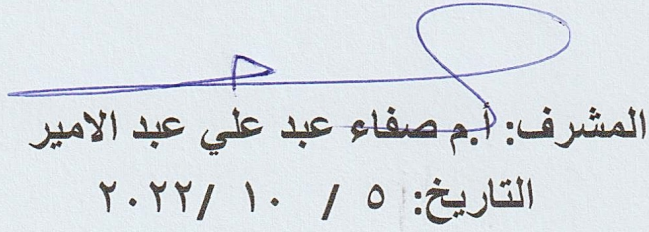 المشرف: أ.م صفاء عبد علي عبد الامير
التاريخ: ٥ / ١٠ /٢٠٢٢